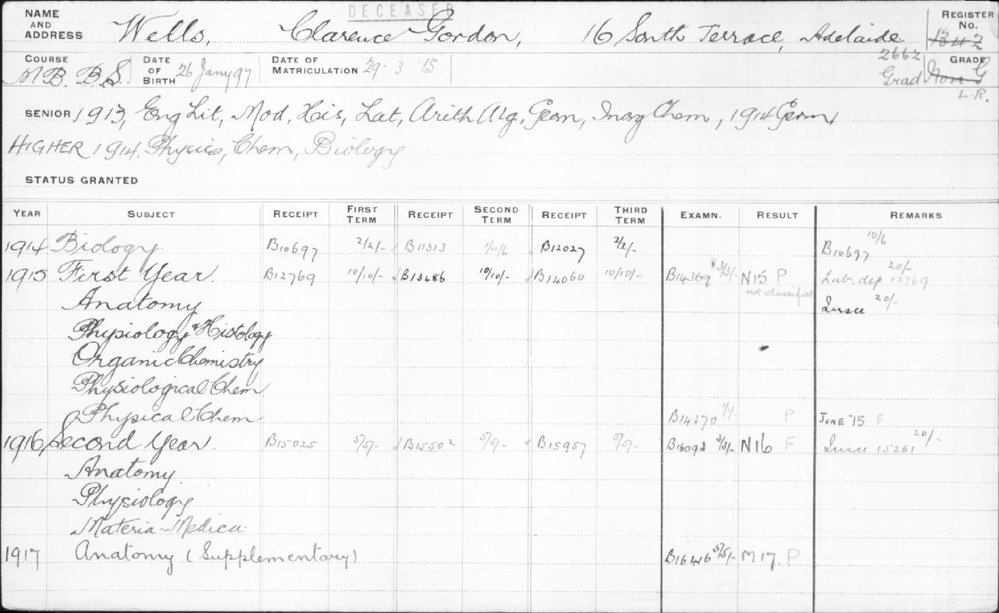 DECEASED
NAME AND ADDRESS Wells, Clarence Gordon, 16 South Terrace, Adelaide REGISTER No.
2662
COURSE M.B. B.S. DATE OF BIRTH 26 Jany 97 DATE OF MATRICULATION 29·3·15 Grad GRADE
L.R.
SENIOR 1913, Eng Lit, Mod, His, Lat, Arith Alg, Geom, Inorg Chem, 1914 Germ
HIGHER 1914. Physics, Chem, Biology
STATUS GRANTED
YEAR SUBJECT RECEIPT FIRST TERM RECEIPT SECOND TERM RECEIPT THIRD TERM EXAMN. RESULT REMARKS
1914 Biology. B10697 2/2/- B11313 B12027 2/2/- B10697 10/6
1915 First Year. B12769 10/10/- B13486 10/10/- B14060 10/10/- B14369 3/3/- N15 P Lab. dep 12769 20/-
Anatomy not classified 20/-
Physiology & Histology
Organic Chemistry
Physiological Chem
Physical Chem B14370 1/1- P JUNE '15 F
1916 Second Year. B15025 5/5/- B15502 5/5/- B15957 5/5/- B16092 3/3/- N16 F 15261 20/-
Anatomy.
Physiology
Materia-Medica.
1917 Anatomy (Supplementary) B16416 5/5/- M17. P